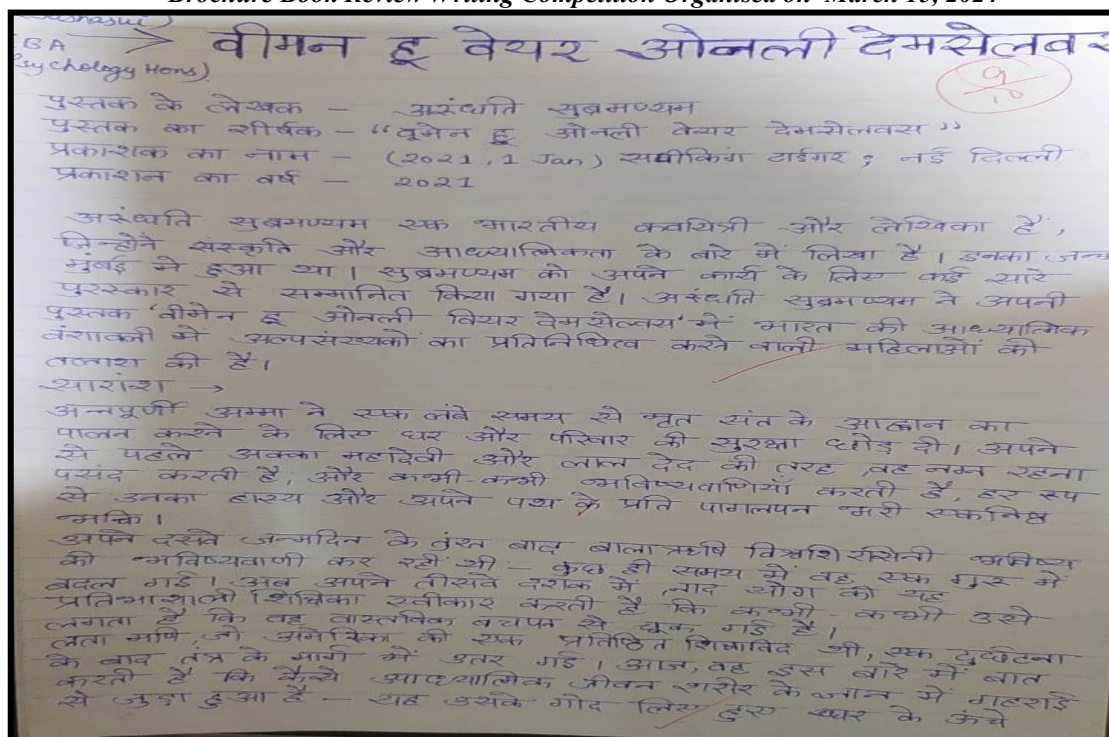 Brochure Book Review Writing Competition Organised on March 15, 2024
BA
Psychology Hons)
→ वीमन हू वेयर ओनली देमसेलवस
9/10
पुस्तक के लेखक - अरुंधति सुब्रमण्यम
पुस्तक का शीर्षक - "वूमेन हू ओनली वेयर देमसेलवस"
प्रकाशक का नाम - (2021, 1 Jan) सपीकिंग टाईगर ; नई दिल्ली
प्रकाशन का वर्ष - 2021
अरुंधति सुब्रमण्यम एक भारतीय कवयित्री और लेखिका हैं,
जिन्होंने संस्कृति और आध्यात्मिकता के बारे में लिखा है। इनका जन्म
मुंबई मे हुआ था। सुब्रमण्यम को अपने कार्य के लिए कई सारे
पुरस्कार से सम्मानित किया गया है। अरुंधति सुब्रमण्यम ने अपनी
पुस्तक 'वीमेन हू ओनली वियर देमसेल्वस' में भारत की आध्यात्मिक
वंशावली में अल्पसंख्यकों का प्रतिनिधित्व करने वाली महिलाओं की
तलाश की है।
सारांश →
अन्नपूर्णी अम्मा ने एक लंबे समय से मृत संत के आह्वान का
पालन करने के लिए घर और परिवार की सुरक्षा छोड़ दी। अपने
से पहले अक्का महादेवी और लाल देद की तरह, वह नग्न रहना
पसंद करती है, और कभी-कभी भविष्यवाणियाँ करती है, हर रूप
से उनका हास्य और अपने पथ के प्रति पागलपन भरी एकनिष्ठ
भक्ति।
अपने दसवें जन्मदिन के तुरंत बाद बाला ऋषि विश्वशिरासिनी भविष्य
की भविष्यवाणी कर रही थी - कुछ ही समय में वह एक गुरु में
बदल गई। अब अपने तीसवे दशक में, नाद योग की यह
प्रतिभाशाली शिक्षिका स्वीकार करती है कि कभी-कभी उसे
लगता है कि वह वास्तविक बचपन से चूक गई है।
लता मणि, जो अमेरिका की एक प्रतिष्ठित शिक्षाविद थी, एक दुर्घटना
के बाद तंत्र के मार्ग में उतर गई। आज, वह इस बारे में बात
करती है कि कैसे आध्यात्मिक जीवन शरीर के ज्ञान में गहराई
से जुड़ा हुआ है - यह उसके गोद लिए हुए घर के ऊंचे